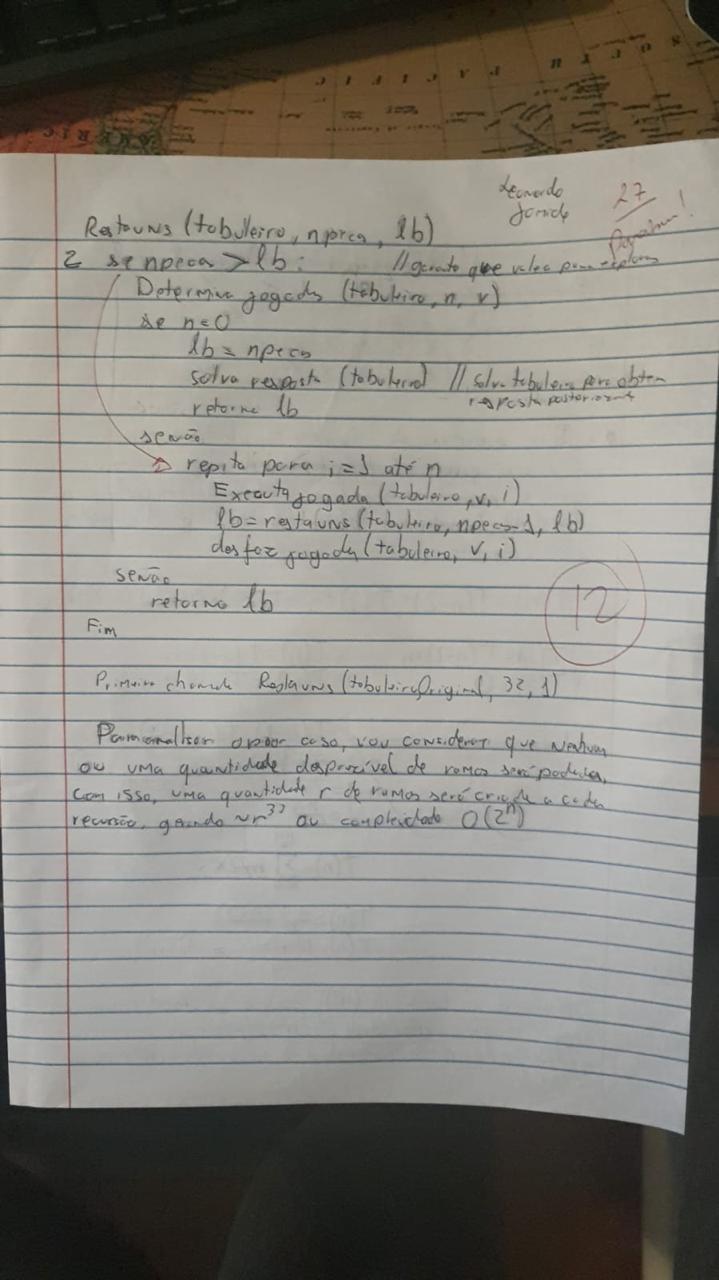 SOUTH PACIFIC
Leonardo
27
RestaUNS (tabuleiro, npeca, lb)
2 se npeca > lb: // garanto que valea para explorar
Determina jogadas (tabuleiro, n, v)
se n=0
lb = npeca
salva resposta (tabuleiro) // salva tabuleiro para obter
resposta posteriormente
retorna lb
senão
repita para i=1 até n
Executa jogada (tabuleiro, v, i)
lb = restauns (tabuleiro, npeca-1, lb)
desfaz jogada (tabuleiro, v, i)
senão
retorno lb
Fim
12
Primeira chamada RestaUNS (tabuleiro Original, 32, 1)
Para analisar o pior caso, vou considerar que nenhum
ou uma quantidade desprezível de ramos será podada,
com isso, uma quantidade r de ramos será criada a cada
recursão, gerando ~r³² ou complexidade O(2ⁿ)